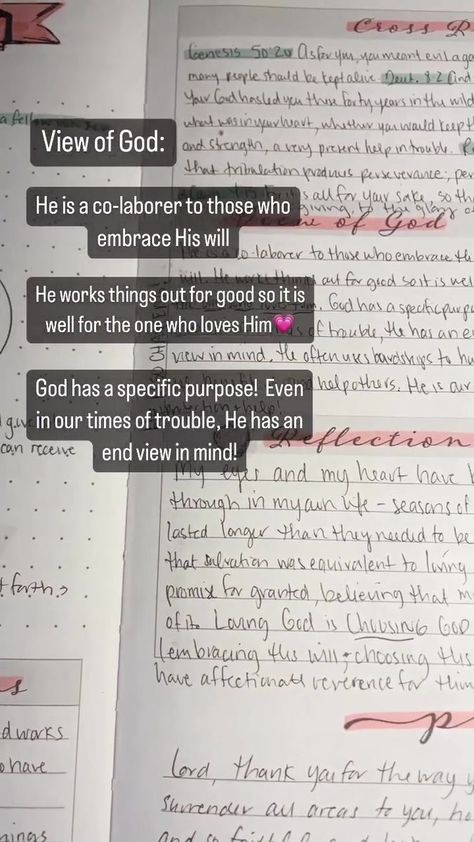 Cross R
Genesis 50:20 As for you, you meant evil aga
many people should be kept alive. Deut. 8:2 And
Your God has led you these forty years in the wild
what was in your heart, whether you would keep th
and strength, a very present help in trouble.
that tribulation produces perseverance; per
is all for your sake, so th
giving to the glory
a fellow
View of God:
He is a co-laborer to those who
embrace His will
He works things out for good so it is
well for the one who loves Him💗
God has a specific purpose! Even
in our times of trouble, He has an
end view in mind!
of God
co-laborer to those who embrace the
will. He works things out for good so it is wel
God has a specific purpo
s of trouble, He has an e
view in mind. He often uses hardships to h
help others. He is our
can receive
Reflection
My eyes and my heart have
through in my own life - seasons of
lasted longer than they needed to be
that salvation was equivalent to loving
promise for granted, believing that m
of it. Loving God is CHOOSING GOD
(embracing His will; choosing His
have affectionate reverence for Him
forth?
s
d works
o have
nings
P
Lord, thank you for the way y
surrender all areas to you, ho